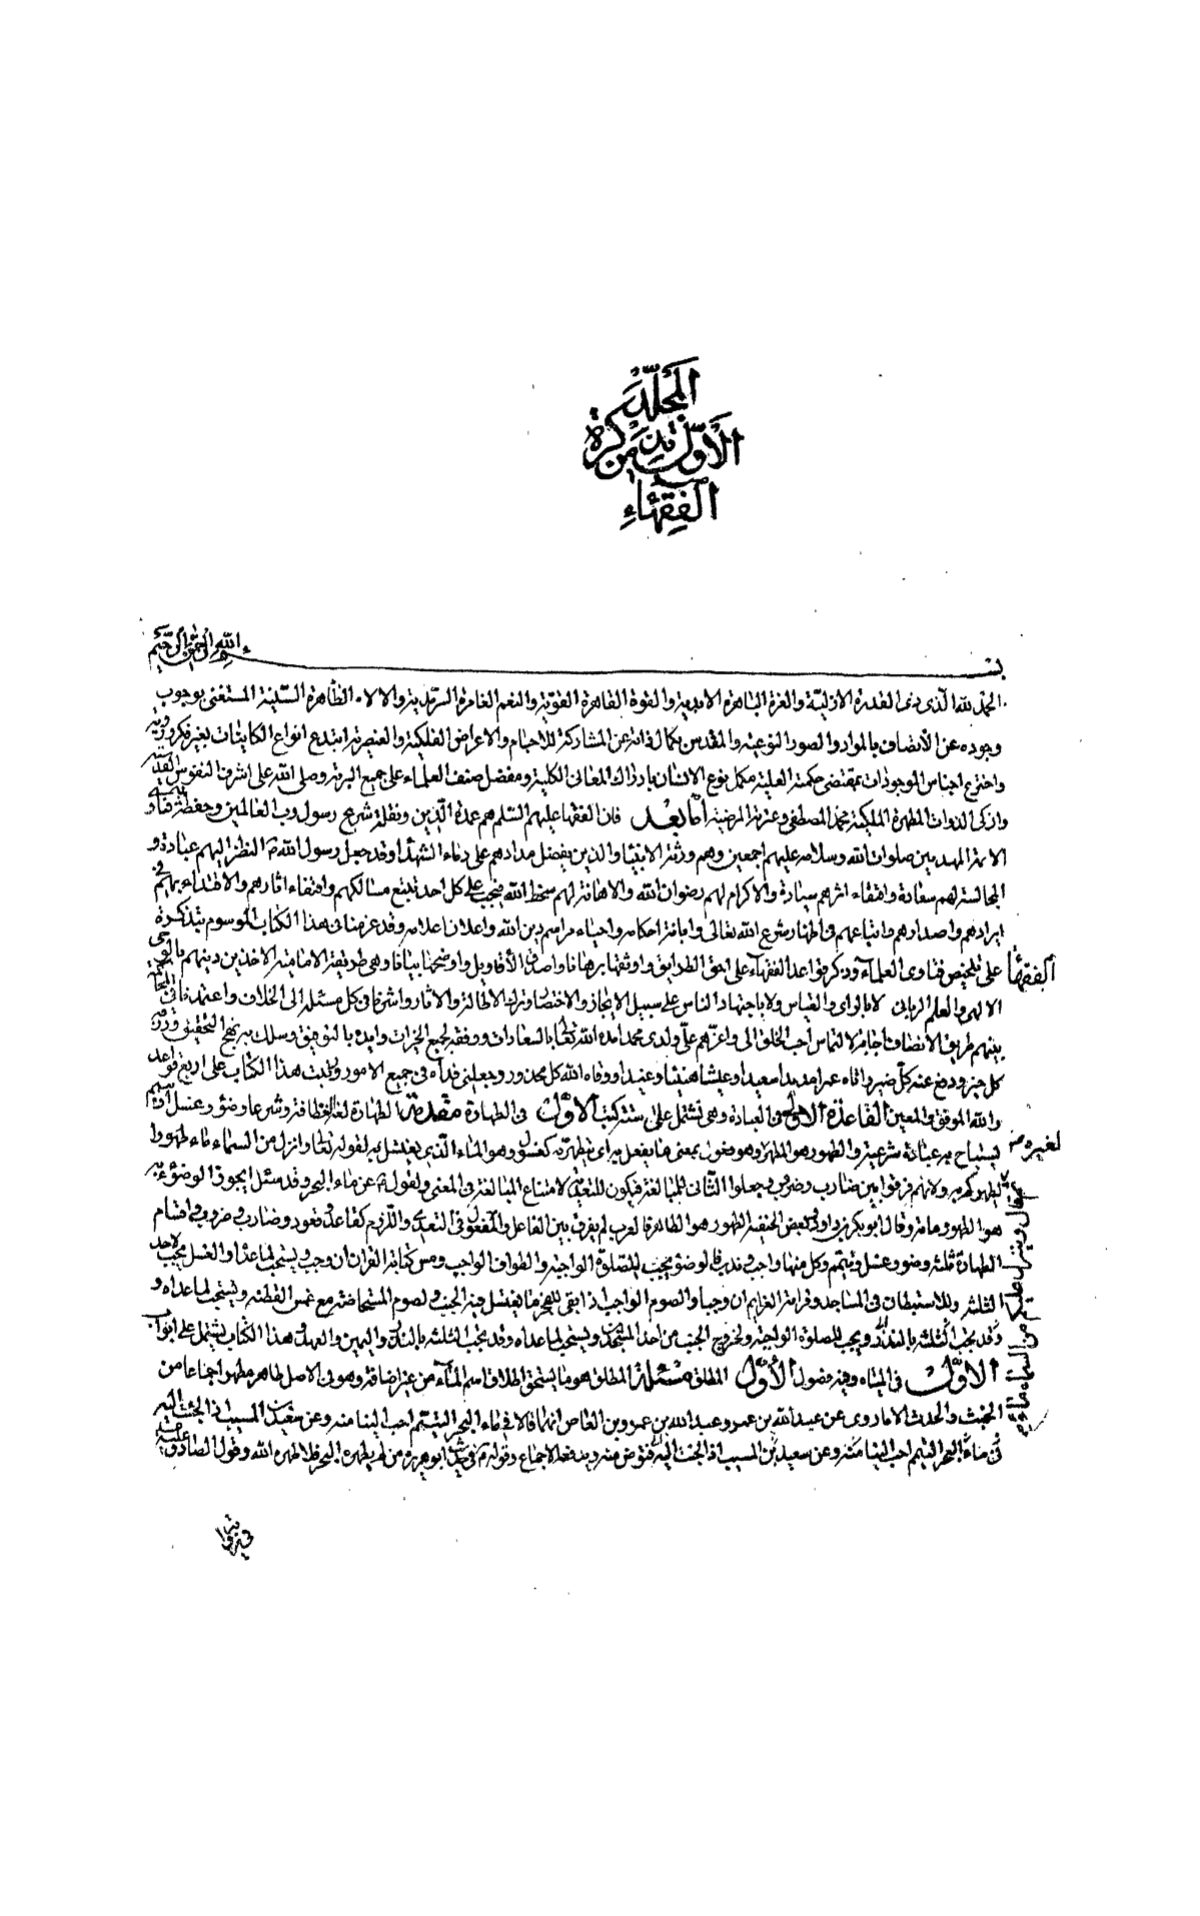 المجلد
الأول من تذكرة
الفقهاء
بسم الله الرحمن الرحيم
الحمد لله الذى ذى القدرة الازليّة والعزة الباهرة الابدية والقوة القاهرة القويّة والنعم الغامرة السرمدية والالاء الظاهرة السنية المستغنى بوجوب
وجوده عن الاتصاف بالمواد والصور النوعية والمقدس بكمال ذاته عن المشاركة للاجسام والاعراض الفلكية والعنصرية ابتدع انواع الكاينات بغير فكر وروية
واخترع اجناس الموجودات بمقتضى حكمته العلية مكمل نوع الانسان بادراك المعانى الكلية ومفضل صنف العلماء على جميع البرية وصلى الله على اشرف النفوس القدسية
وازكى الذوات المطهرة الملكية محمد المصطفى وعترته المرضية أما بعد فان الفقهاء عليهم السلم هم عمدة الدين ونقلة شرع رسول رب العالمين وحفظة فتاوى
الائمة المهديين صلوات الله وسلامه عليهم اجمعين وهم ورثة الانبياء والذين يفضل مدادهم على دماء الشهداء وقد جعل رسول الله ص النظر اليهم عبادة و
المجالسة لهم سعادة واقتفاء اثرهم سيادة والاكرام لهم رضوان الله والاهانة لهم سخط الله فيجب على كل احد تتبع مسالكهم واقتفاء اثارهم والاقتداء بهم في
ايرادهم واصدارهم واتباعهم فى اظهار شرع الله تعالى وابانة احكامه واحياء مراسم دين الله واعلان اعلامه وقد عزمنا فى هذا الكتاب الموسوم بتذكرة
الفقهاء على تلخيص فتاوى العلماء وذكر قواعد الفقهاء على احق الطرايق واوثقها برهانا واصدق الأقاويل واوضحها بيانا وهى طريقة الامامية الاخذين دينهم بالوحى
الالهى والعلم الربانى لا بالراى والقياس ولا باجتهاد الناس على سبيل الايجاز والاختصار وترك الاطالة والاكثار واشرنا فى كل مسئلة الى الخلاف واعتمدنا فى المحاكمة
بينهم طريق الانصاف اجابة لالتماس احب الخلق الى واعزهم على ولدى محمد امده الله تعالى بالسعادات ووفقه لجميع الخيرات وايده بالتوفيق وسلك به نهج التحقيق ورزقه
كل خير ودفع عنه كل ضير واتاه عمرا مديدا سعيدا وعيشا هنيئا رغيدا ووقاه الله كل محذور وجعلنى فداه فى جميع الامور ورتبت هذا الكتاب على اربع قواعد
والله الموفق والمعين القاعدة الاولى فى العبادة وهى تشتمل على ستة كتب الاول فى الطهارة مقدمة الطهارة لغة النظافة وشرعا وضوء وغسل او تيمم
يستباح به عبادة شرعية والطهور هو المطهر لغيره وهو فعول بمعنى ما يفعل به اى يتطهر به كغسول وهو الماء الذى يغتسل به لقوله تعالى وانزل من السماء ماء طهورا
ثم قال وينزل عليكم من السماء ماء ليطهركم به ولانهم فرقوا بين ضارب وضروب وجعلوا الثانى للمبالغة فيكون للتعدية لامتناع المبالغة فى المعنى ولقوله ص عن ماء البحر وقد سئل ايجوز الوضوء به
هو الطهور ماؤه وقال ابو بكر بن داود وبعض الحنفية الطهور هو الطاهر فالعرب لم يفرق بين الفاعل والمفعول فى التعدى واللزوم كقاعد وقعود وضارب وضروب واقسام
الطهارة ثلثة وضوء وغسل وتيمم وكل منها واجب وندب فالوضوء يجب للصلوة الواجبة والطواف الواجب ومس كتابة القران ان وجب ويستحب لما عداه والغسل يجب لاحد
الثلثة وللاستيطان فى المساجد وقراءة العزايم ان وجبا والصوم الواجب اذا بقى للفجر ما يغتسل فيه الجنب ولصوم المستحاضة مع غمس القطنة ويستحب لما عداه و
التيمم يجب للصلوة الواجبة ولخروج الجنب من احد المسجدين ويستحب لما عداه وقد تجب الثلثة بالنذر واليمين والعهد وهذا الكتاب يشتمل على ابواب
الاول فى المياه وفيه فصول الأول المطلق مسئلة المطلق هو ما يستحق اطلاق اسم الماء من غير اضافة وهو فى الاصل طاهر مطهر اجماعا من
الخبث والحدث الا ما روى عن عبد الله بن عمر وعبد الله بن عمرو بن العاص انهما قالا فى ماء البحر التيمم احب الينا منه وعن سعيد بن المسيب اذا الجئت اليه
فتوضأ منه ويدفعه الاجماع وقوله ص فى حديث ابو هريرة من لم يطهره البحر فلا طهره الله وقول الصادق عليه